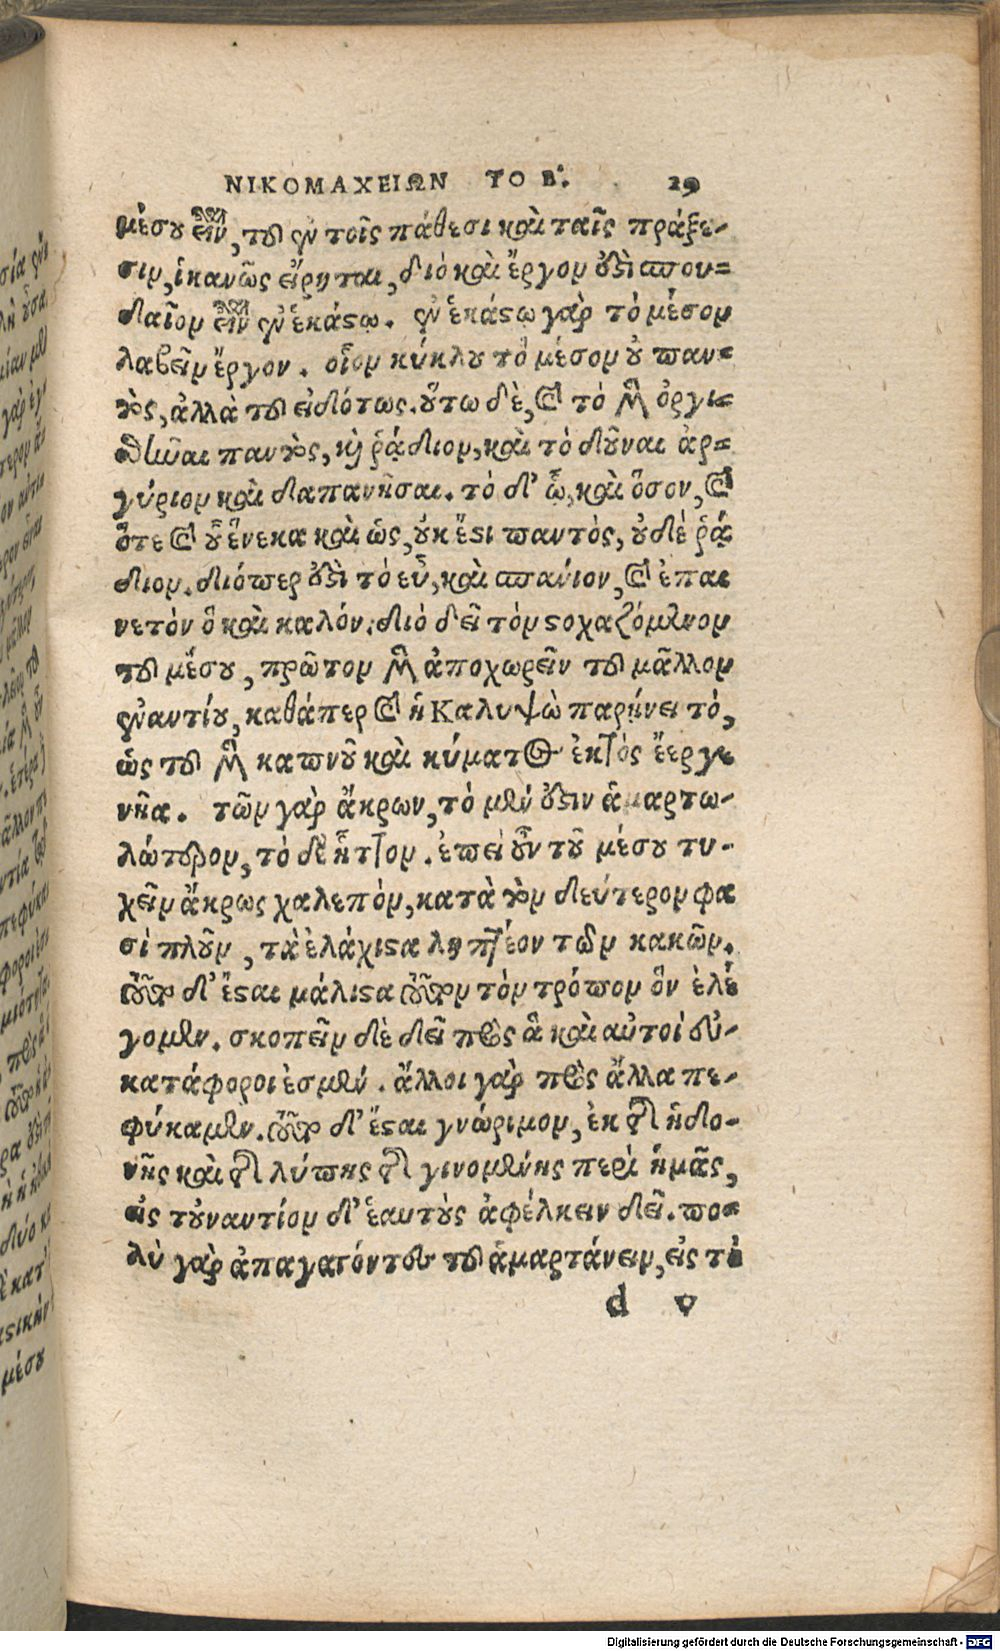 ΝΙΚΟΜΑΧΕΙΩΝ ΤΟ Β. 29
μέσου εἶναι, τοῦ ἐν τοῖς πάθεσι καὶ ταῖς πράξε-
σιν, ἱκανῶς εἴρηται, διὸ καὶ ἔργον ὅστὶ σπου=
δαῖον εἶναι ἐν ἑκάστῳ. ἐν ἑκάστῳ γὰρ τὸ μέσον
λαβεῖν ἔργον. οἷον κύκλου τὸ μέσον οὐ παν=
τὸς, ἀλλὰ τοῦ εἰδότως. οὕτω δὲ, καὶ τὸ μὲν ὀργι=
σθῆναι παντὸς, καὶ ῥάδιον, καὶ τὸ δοῦναι ἀρ=
γύριον καὶ δαπανῆσαι. τὸ δ' ᾧ, καὶ ὅσον, καὶ
ὅτε καὶ οὗ ἕνεκα καὶ ὡς, οὐκ ἔστι παντὸς, οὐδὲ ῥά
διον. διόπερ ἐστὶ τὸ εὖ, καὶ σπάνιον, καὶ ἐπαι
νετὸν ὃ καὶ καλόν. διὸ δεῖ τὸν στοχαζόμενον
τοῦ μέσου, πρῶτον μὲν ἀποχωρεῖν τοῦ μᾶλλον
ἐναντίου, καθάπερ καὶ ἡ Καλυψὼ παρῄνει τὸ,
ὡς τοῦ μὲν καπνοῦ καὶ κύματος ἐκτὸς ἔεργε
νῆα. τῶν γὰρ ἄκρων, τὸ μέν ἐστιν ἁμαρτω-
λώτερον, τὸ δὲ ἧττον. ἐπεὶ οὖν τοῦ μέσου τυ-
χεῖν ἄκρως χαλεπὸν, κατὰ τὸν δεύτερον φα
σὶ πλοῦν, τὰ ἐλάχιστα ληπτέον τῶν κακῶν.
τοῦτο δ' ἔσται μάλιστα τοῦτον τὸν τρόπον ὃν ἐλέ
γομεν. σκοπεῖν δὲ δεῖ πρὸς ἃ καὶ αὐτοὶ εὐ-
κατάφοροι ἐσμέν. ἄλλοι γὰρ πρὸς ἄλλα πε-
φύκαμεν. τοῦτο δ' ἔσται γνώριμον, ἐκ τῆς ἡδο-
νῆς καὶ τῆς λύπης τῆς γινομένης περὶ ἡμᾶς,
εἰς τοὐναντίον δ' ἑαυτοὺς ἀφέλκειν δεῖ. πο=
λὺ γὰρ ἀπαγαγόντες τοῦ ἁμαρτάνειν, εἰς τὸ
d v
Digitalisierung gefördert durch die Deutsche Forschungsgemeinschaft - DFG